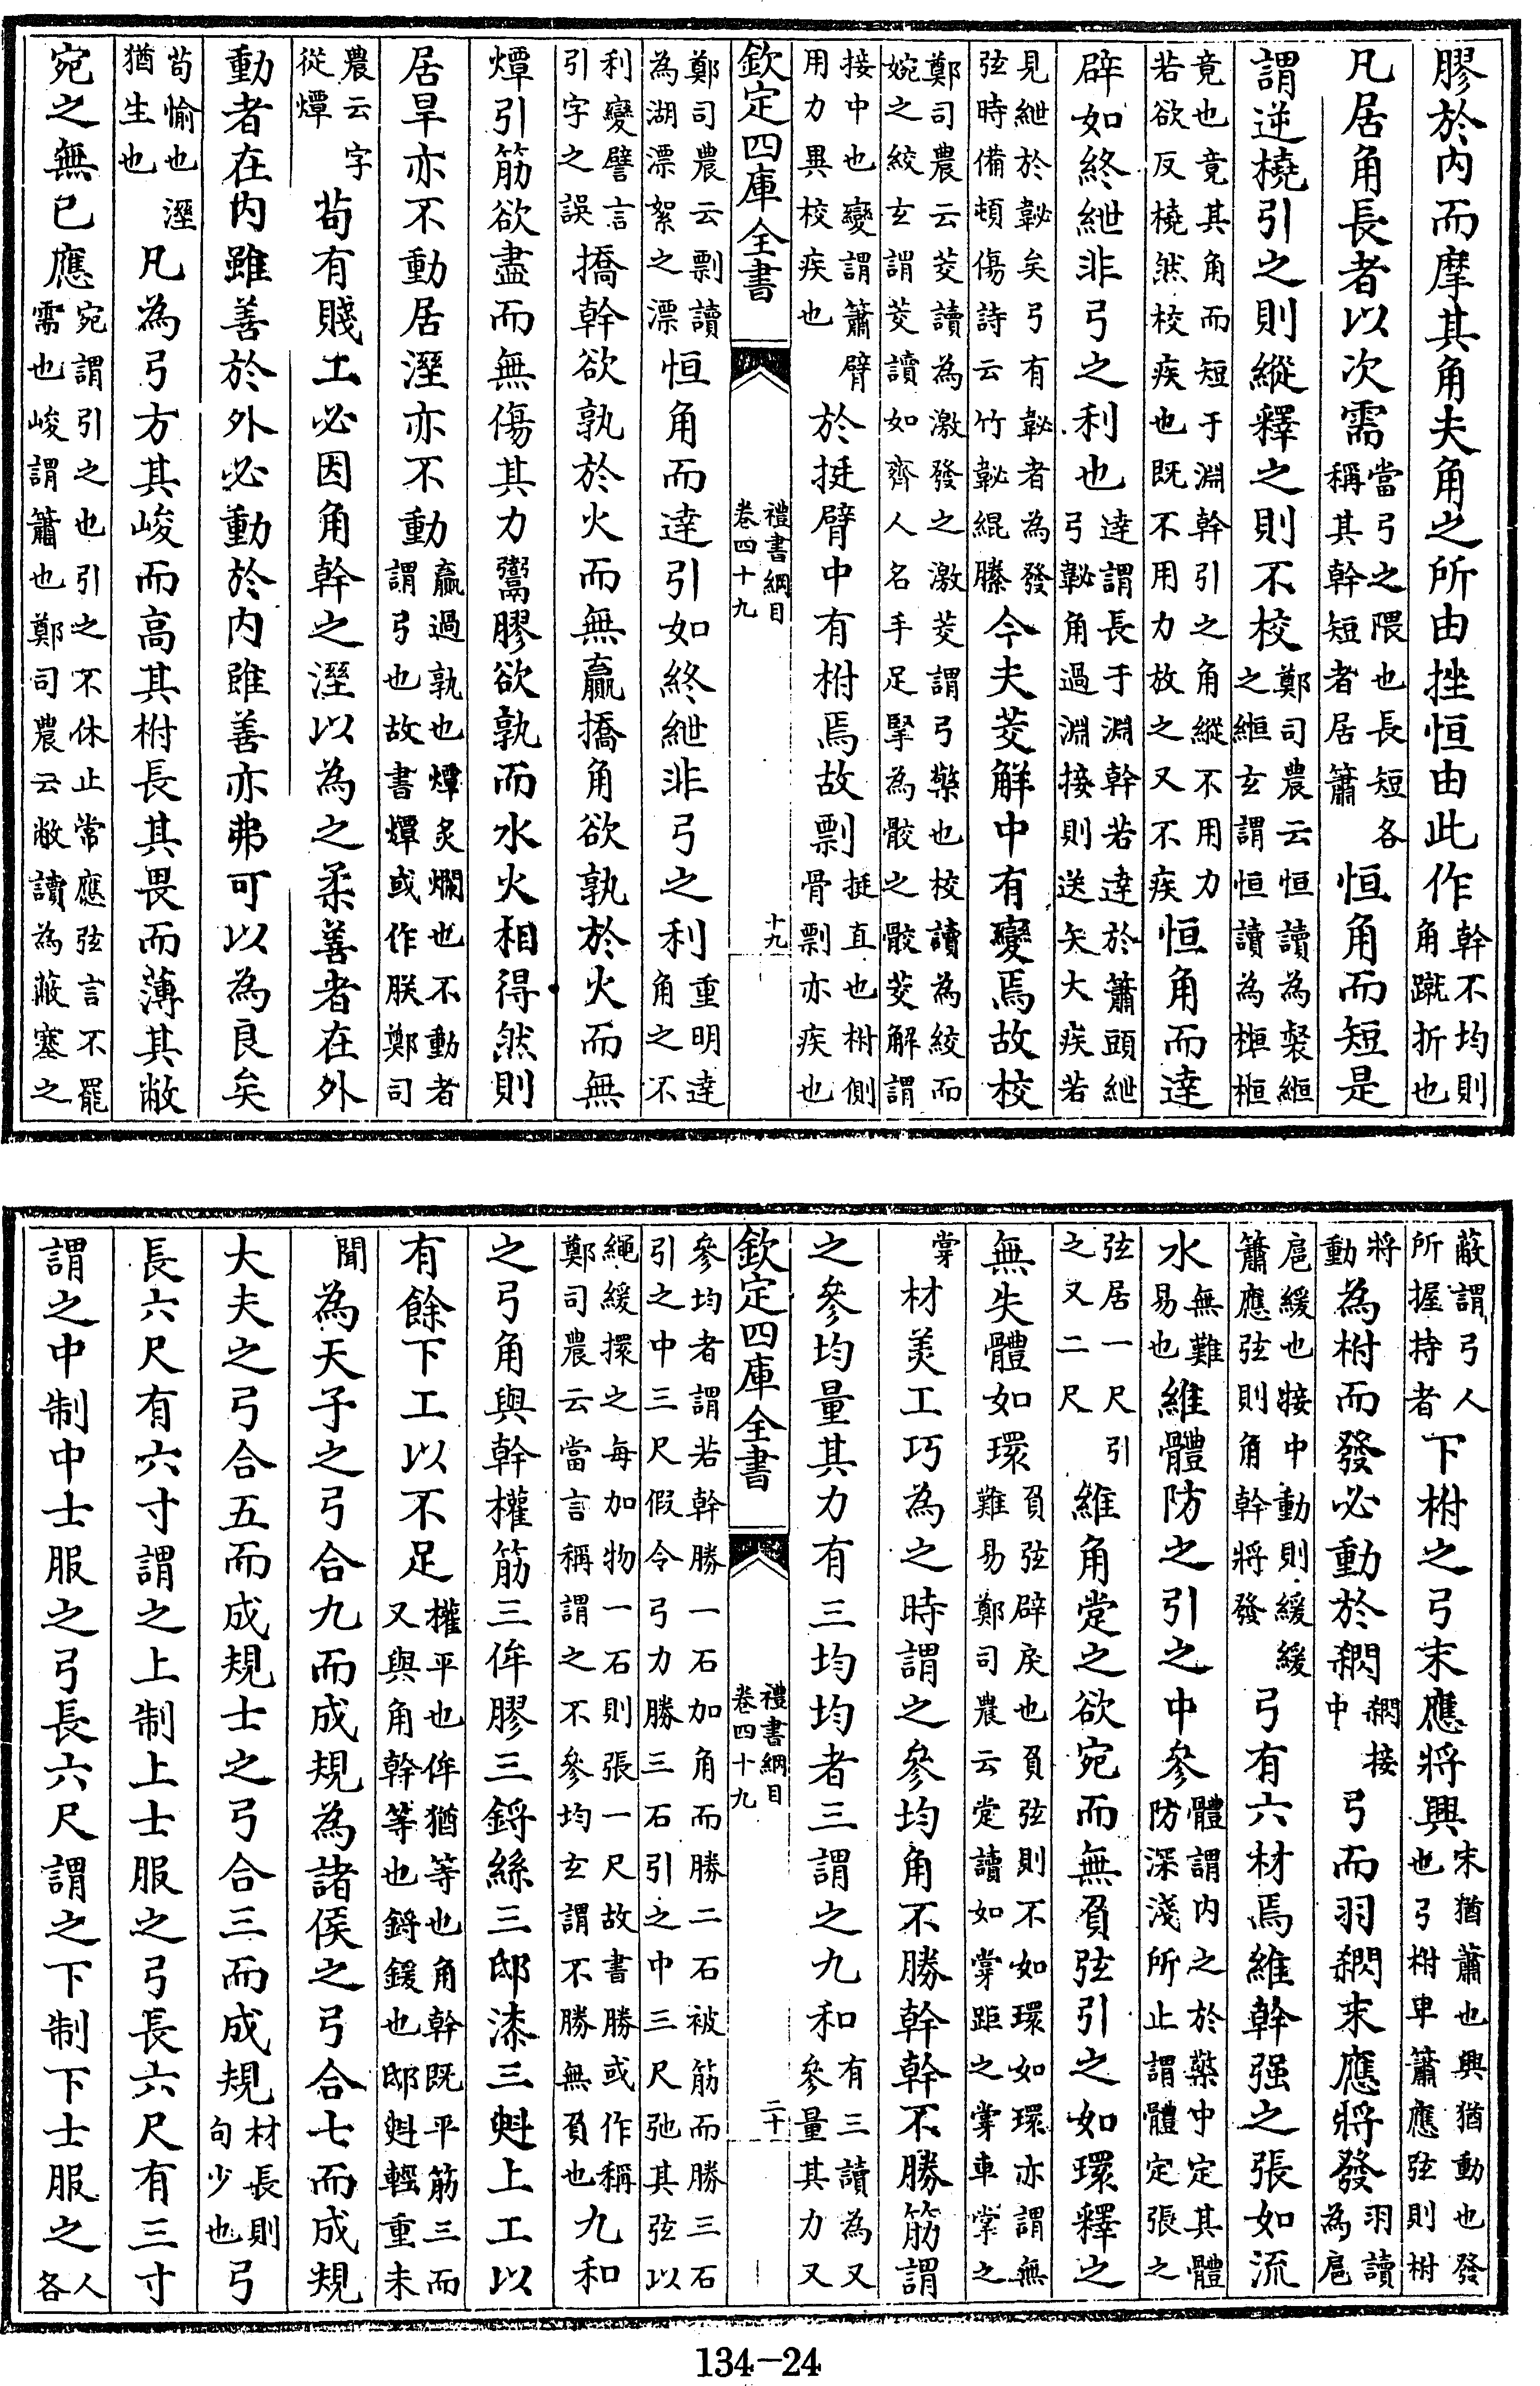 膠於內而摩其角夫角之所由挫恒由此作幹不均則角蹴折也
凡居角長者以次需當弓之隈也長短各稱其幹短者居簫恒角而短是
謂逆橈引之則縱釋之則不校鄭司農云恒讀為裻緪之緪玄謂恒讀為桓桓
竟也竟其角而短于淵幹引之角縱不用力若欲反橈然校疾也既不用力放之又不疾恒角而達
辟如終紲非弓之利也達謂長于淵幹若達於簫頭紲弓䪐角過淵接則送矢大疾若
見紲於䪐矣弓有䪐者為發弦時備頓傷詩云竹䪐緄縢今夫茭解中有變焉故校
鄭司農云茭讀為激發之激茭謂弓檠也校讀為絞而婉之絞玄謂茭讀如齊人名手足掔為骹之骹茭解謂
接中也變謂簫臂用力異校疾也於挺臂中有柎焉故剽挺直也柎側骨剽亦疾也
欽定四庫全書
禮書綱目
卷四十九
十九
鄭司農云剽讀為湖漂絮之漂恒角而達引如終紲非弓之利重明達角之不
利變譬言引字之誤撟幹欲孰於火而無贏撟角欲孰於火而無
燂引筋欲盡而無傷其力鬻膠欲孰而水火相得然則
居旱亦不動居溼亦不動贏過孰也燂炙爛也不動者謂弓也故書燂或作朕鄭司
農云字從燂苟有賤工必因角幹之溼以為之柔善者在外
動者在內雖善於外必動於內雖善亦弗可以為良矣
苟愉也溼猶生也凡為弓方其峻而高其柎長其畏而薄其敝
宛之無已應宛謂引之也引之不休止常應弦言不罷需也峻謂簫也鄭司農云敝讀為蔽塞之
蔽謂弓人所握持者下柎之弓末應將興末猶簫也興猶動也發也弓柎卑簫應弦則柎
將動為柎而發必動於𥻦𥻦接中弓而羽𥻦末應將發羽讀為扈
扈緩也接中動則緩緩簫應弦則角幹將發弓有六材焉維幹强之張如流
水無難易也維體防之引之中參體謂內之於檠中定其體防深淺所止謂體定張之
弦居一尺引之又二尺維角㲉之欲宛而無負弦引之如環釋之
無失體如環負弦辟戾也負弦則不如環如環亦謂無難易鄭司農云㲉讀如牚距之牚車牚之
牚材美工巧為之時謂之參均角不勝幹幹不勝筋謂
之參均量其力有三均均者三謂之九和有三讀為又參量其力又
欽定四庫全書
禮書綱目
卷四十九
二十
參均者謂若幹勝一石加角而勝二石被筋而勝三石引之中三尺假令弓力勝三石引之中三尺弛其弦以
繩緩擐之每加物一石則張一尺故書勝或作稱鄭司農云當言稱謂之不參均玄謂不勝無負也九和
之弓角與幹權筋三侔膠三鋝絲三邸漆三斞上工以
有餘下工以不足權平也侔猶等也角幹既平筋三而又與角幹等也鋝鍰也邸斞輕重未
聞為天子之弓合九而成規為諸侯之弓合七而成規
大夫之弓合五而成規士之弓合三而成規材長則句少也弓
長六尺有六寸謂之上制上士服之弓長六尺有三寸
謂之中制中士服之弓長六尺謂之下制下士服之人各
134-24